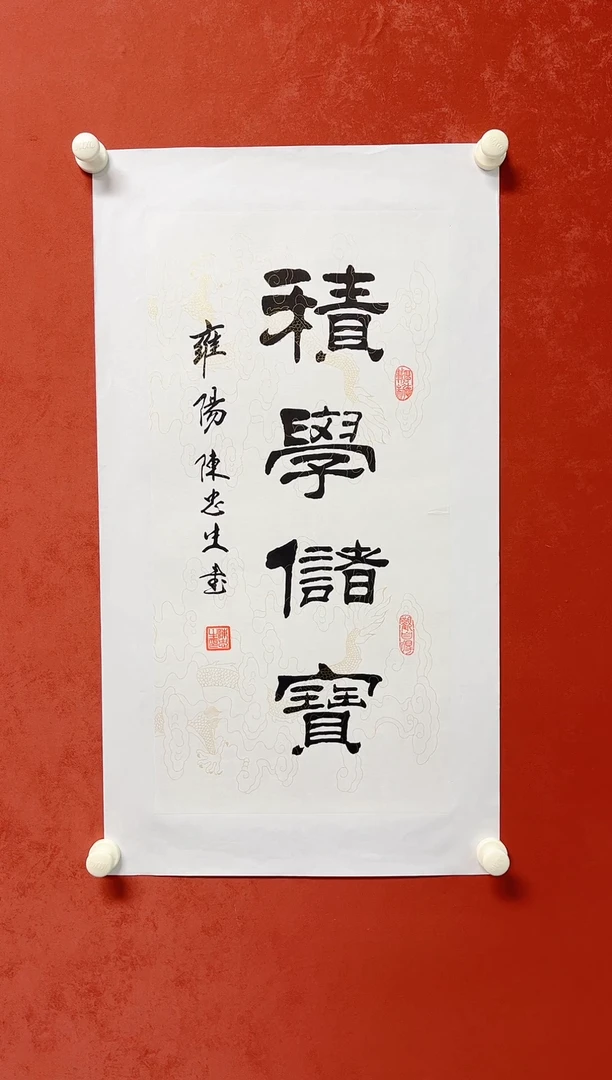 積學儲寶
雍陽陳忠生書